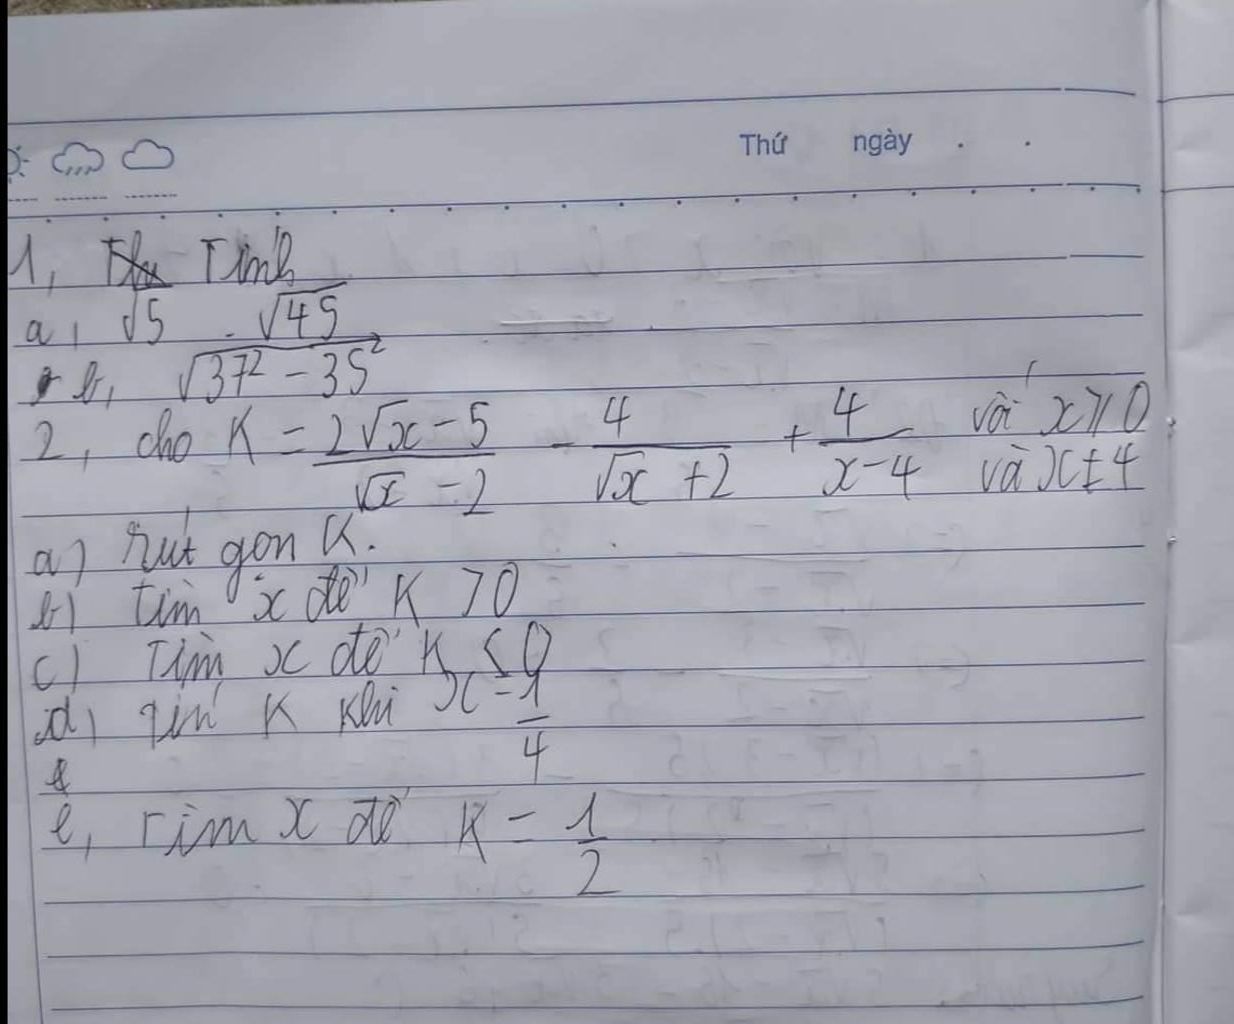 Thứ ngày . .
1, Tính
a, √5 . √45
b, √37² - 35²
2, cho K = 2√x - 5 / √x - 2 - 4 / √x + 2 + 4 / x - 4 với x ≥ 0 và x ≠ 4
a) rút gọn K.
b) tìm x để K > 0
c) Tìm x để K < 0
d, K khi x = 1/4
e, Tìm x để K = 1/2